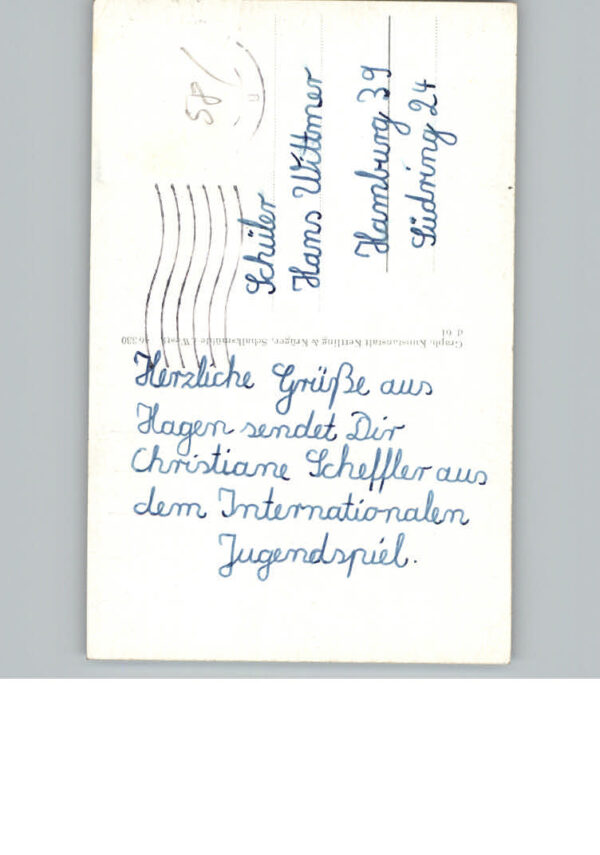 Herzliche Grüße aus
Hagen sendet Dir
Christiane Scheffler aus
dem Internationalen
Jugendspiel.
Schüler
Hans Wittmer
Hamburg 39
Südring 24
58/
Graph. Kunstanstalt Kettling & Krüger, Schalksmühle i. Westf. 46 330
d 61